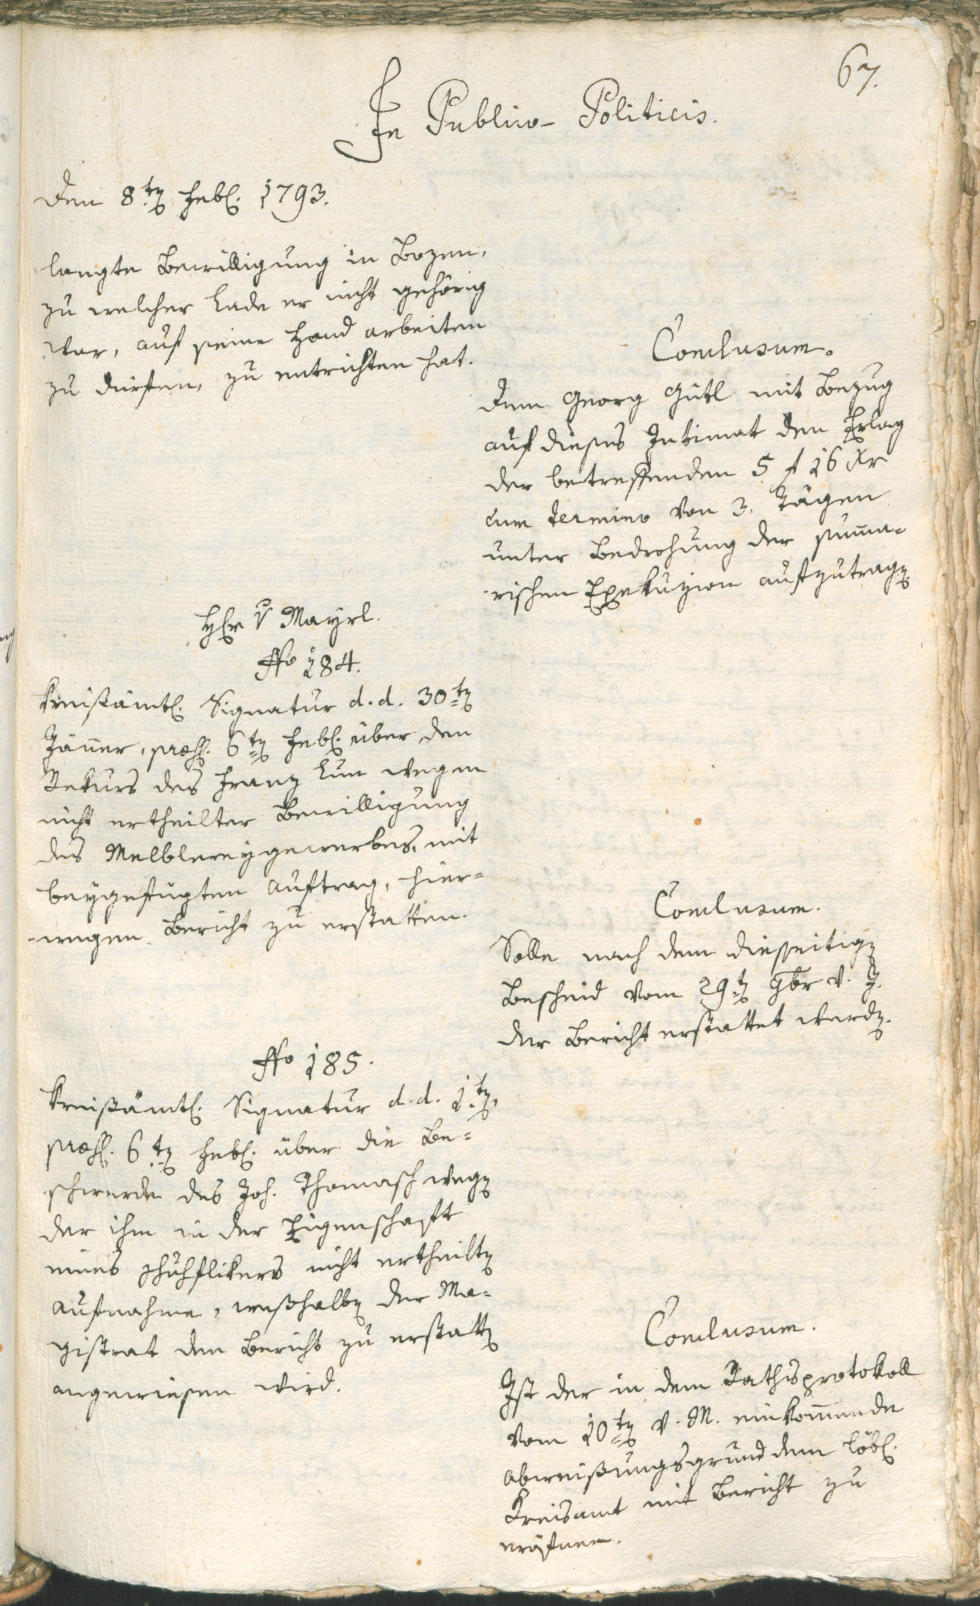 67.
In Publico-Politicis.
Den 8ten Febl. 1793.
langte Bewilligung in Bozen,
zu welcher Lade er nicht gehörig
war, auf seine Hand arbeiten
zu dürfen, zu entrichten hat.
Conclusum.
Dem Georg Gütl mit Bezug
auf dieses Intimat den Erlag
der betreffenden 5 f 16 Xr
cum termino von 3. Tägen
unter Bedrohung der summa-
rischen Exekuzion aufzutragen
Hr v Mayrl.
No 184.
Kreisämtl. Signatur d. d. 30ten
Jänner, præs. 6ten Febl. über den
Rekurs des Franz Lun wegen
nicht ertheilter Bewilligung
des Melblereygewerbes, mit
beygefügten Auftrag, hier-
wegen Bericht zu erstatten.
Conclusum.
Solle nach dem diesseitigen
Bescheid vom 29ten 9br v. J.
der Bericht erstattet werden.
No 185.
Kreisämtl. Signatur d. d. 1ten,
præs. 6ten Febl. über die Be-
schwerde des Joh. Thomasch wegen
der ihm in der Eigenschaft
eines Schuhflikers nicht ertheilten
Aufnahme, weßhalben der Ma-
gistrat den Bericht zu erstatten
angewiesen wird.
Conclusum.
Ist der in dem Rathsprotokoll
vom 10ten v. M. einkommende
Abweisungsgrund dem löbl.
Kreisamt mit Bericht zu
eröfnen.